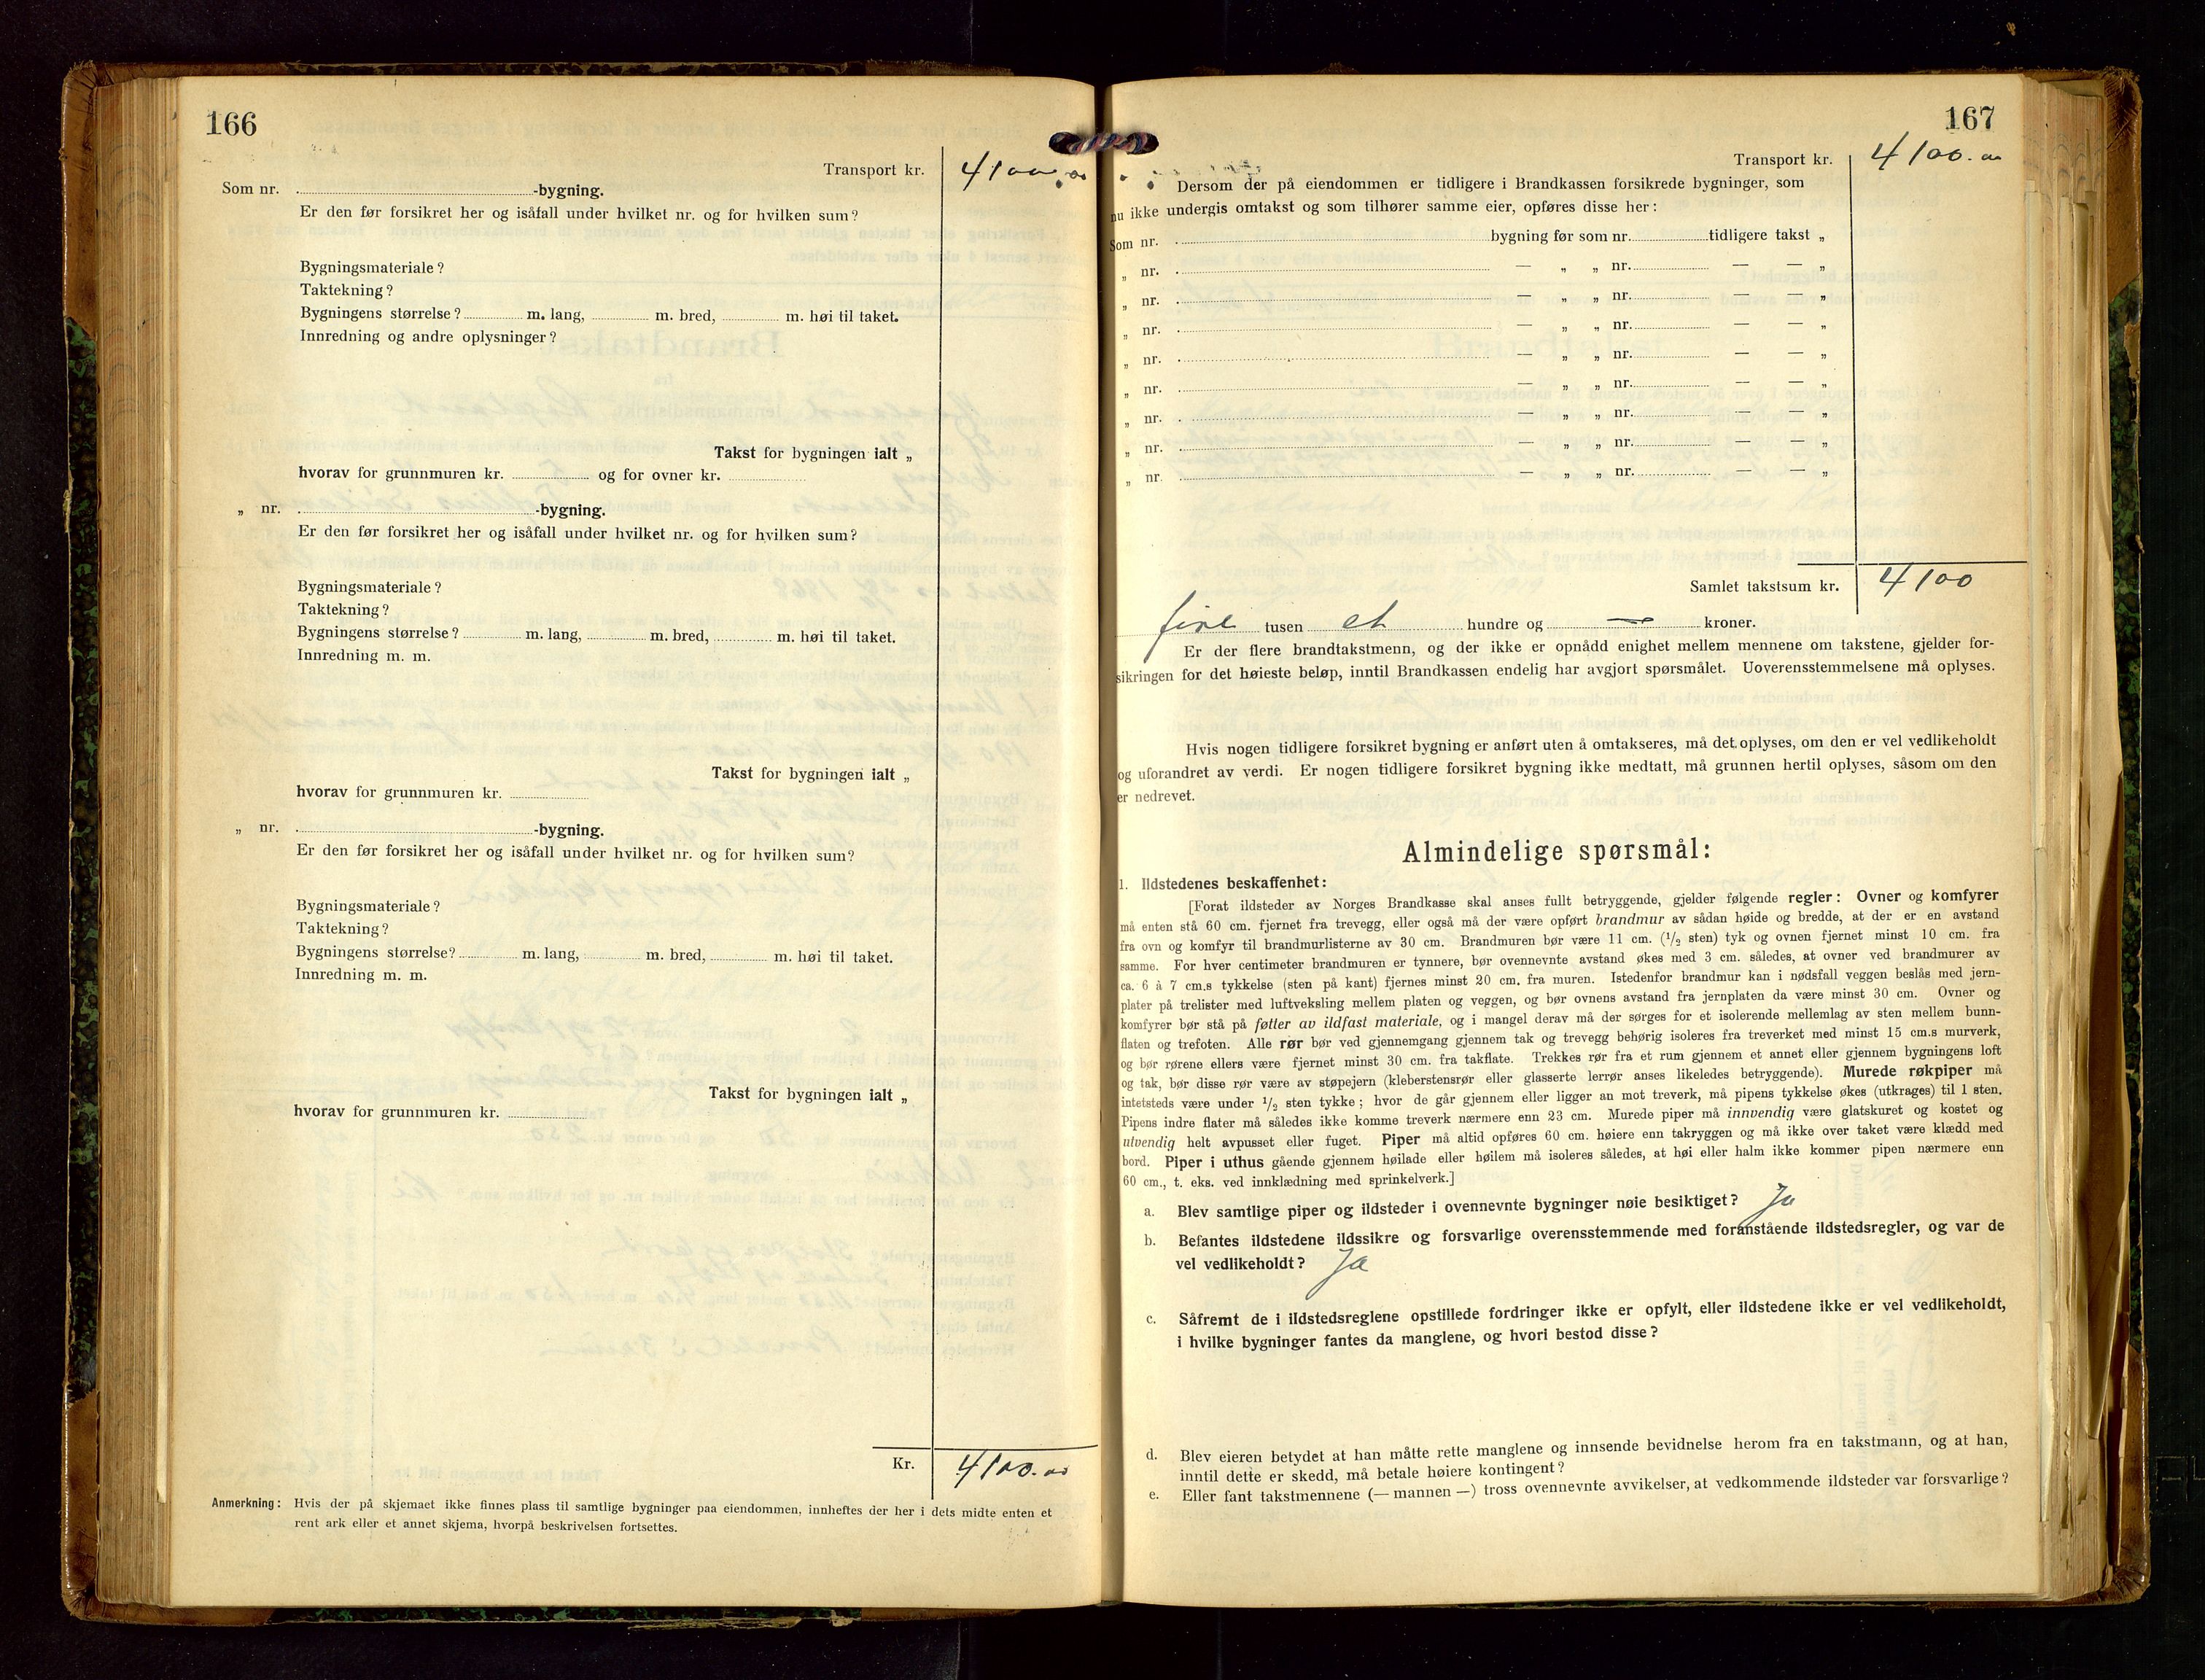 166
Transport kr. 4100.00
Som nr. -bygning.
Er den før forsikret her og isåfall under hvilket nr. og for hvilken sum?
Bygningsmateriale?
Taktekning?
Bygningens størrelse? m. lang, m. bred, m. høi til taket.
Innredning og andre oplysninger?
Takst for bygningen ialt „
hvorav for grunnmuren kr. og for ovner kr.
„ nr. -bygning.
Er den før forsikret her og isåfall under hvilket nr. og for hvilken sum?
Bygningsmateriale?
Taktekning?
Bygningens størrelse? m. lang, m. bred, m. høi til taket.
Innredning m. m.
Takst for bygningen ialt „
hvorav for grunnmuren kr.
„ nr. -bygning.
Er den før forsikret her og isåfall under hvilket nr. og for hvilken sum?
Bygningsmateriale?
Taktekning?
Bygningens størrelse? m. lang, m. bred, m. høi til taket.
Innredning m. m.
Takst for bygningen ialt „
hvorav for grunnmuren kr.
Kr. 4100.00
Anmerkning: Hvis der på skjemaet ikke finnes plass til samtlige bygninger paa eiendommen, innheftes der her i dets midte enten et
rent ark eller et annet skjema, hvorpå beskrivelsen fortsettes.
167
Transport kr. 4100.00
Dersom der på eiendommen er tidligere i Brandkassen forsikrede bygninger, som
nu ikke undergis omtakst og som tilhører samme eier, opføres disse her:
Som nr. bygning før som nr. tidligere takst „
„ nr. — „ „ nr. — — „
„ nr. — „ „ nr. — — „
„ nr. — „ „ nr. — — „
„ nr. — „ „ nr. — — „
„ nr. — „ „ nr. — — „
„ nr. — „ „ nr. — — „
„ nr. — „ „ nr. — — „
„ nr. — „ „ nr. — — „
Samlet takstsum kr. 4100
fire tusen et hundre og — kroner.
Er der flere brandtakstmenn, og der ikke er opnådd enighet mellem mennene om takstene, gjelder for-
sikringen for det høieste beløp, inntil Brandkassen endelig har avgjort spørsmålet. Uoverensstemmelsene må oplyses.
Hvis nogen tidligere forsikret bygning er anført uten å omtakseres, må det oplyses, om den er vel vedlikeholdt
og uforandret av verdi. Er nogen tidligere forsikret bygning ikke medtatt, må grunnen hertil oplyses, såsom om den
er nedrevet.
Almindelige spørsmål:
1. Ildstedenes beskaffenhet:
[Forat ildsteder av Norges Brandkasse skal anses fullt betryggende, gjelder følgende regler: Ovner og komfyrer
må enten stå 60 cm. fjernet fra trevegg, eller også må der være opført brandmur av sådan høide og bredde, at der er en avstand
fra ovn og komfyr til brandmurlisterne av 30 cm. Brandmuren bør være 11 cm. (1/2 sten) tyk og ovnen fjernet minst 10 cm. fra
samme. For hver centimeter brandmuren er tynnere, bør ovennevnte avstand økes med 3 cm. således, at ovner ved brandmurer av
ca. 6 à 7 cm.s tykkelse (sten på kant) fjernes minst 20 cm. fra muren. Istedenfor brandmur kan i nødsfall veggen beslås med jern-
plater på trelister med luftveksling mellem platen og veggen, og bør ovnens avstand fra jernplaten da være minst 30 cm. Ovner og
komfyrer bør stå på føtter av ildfast materiale, og i mangel derav må der sørges for et isolerende mellemlag av sten mellem bunn-
flaten og trefoten. Alle rør bør ved gjennemgang gjennem tak og trevegg behørig isoleres fra treverket med minst 15 cm.s murverk,
og bør rørene ellers være fjernet minst 30 cm. fra takflate. Trekkes rør fra et rum gjennem et annet eller gjennem bygningens loft
og tak, bør disse rør være av støpejern (kleberstensrør eller glasserte lerrør anses likeledes betryggende). Murede røkpiper må
intetsteds være under 1/2 sten tykke; hvor de går gjennem eller ligger an mot treverk, må pipens tykkelse økes (utkrages) til 1 sten.
Pipens indre flater må således ikke komme treverk nærmere enn 23 cm. Murede piper må innvendig være glatskuret og kostet og
utvendig helt avpusset eller fuget. Piper må altid opføres 60 cm. høiere enn takryggen og må ikke over taket være klædd med
bord. Piper i uthus gående gjennem høilade eller høilem må isoleres således, at høi eller halm ikke kommer pipen nærmere enn
60 cm., t. eks. ved innklædning med sprinkelverk.]
a. Blev samtlige piper og ildsteder i ovennevnte bygninger nøie besiktiget? Ja
b. Befantes ildstedene ildssikre og forsvarlige overensstemmende med foranstående ildstedsregler, og var de
vel vedlikeholdt? Ja
c. Såfremt de i ildstedsreglene opstillede fordringer ikke er opfylt, eller ildstedene ikke er vel vedlikeholdt,
i hvilke bygninger fantes da manglene, og hvori bestod disse?
d. Blev eieren betydet at han måtte rette manglene og innsende bevidnelse herom fra en takstmann, og at han,
inntil dette er skedd, må betale høiere kontingent?
e. Eller fant takstmennene (— mannen —) tross ovennevnte avvikelser, at vedkommende ildsteder var forsvarlige?